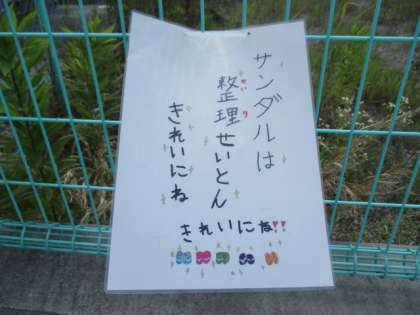 サンダルは
整理せいとん
きれいにね
きれいにね!!